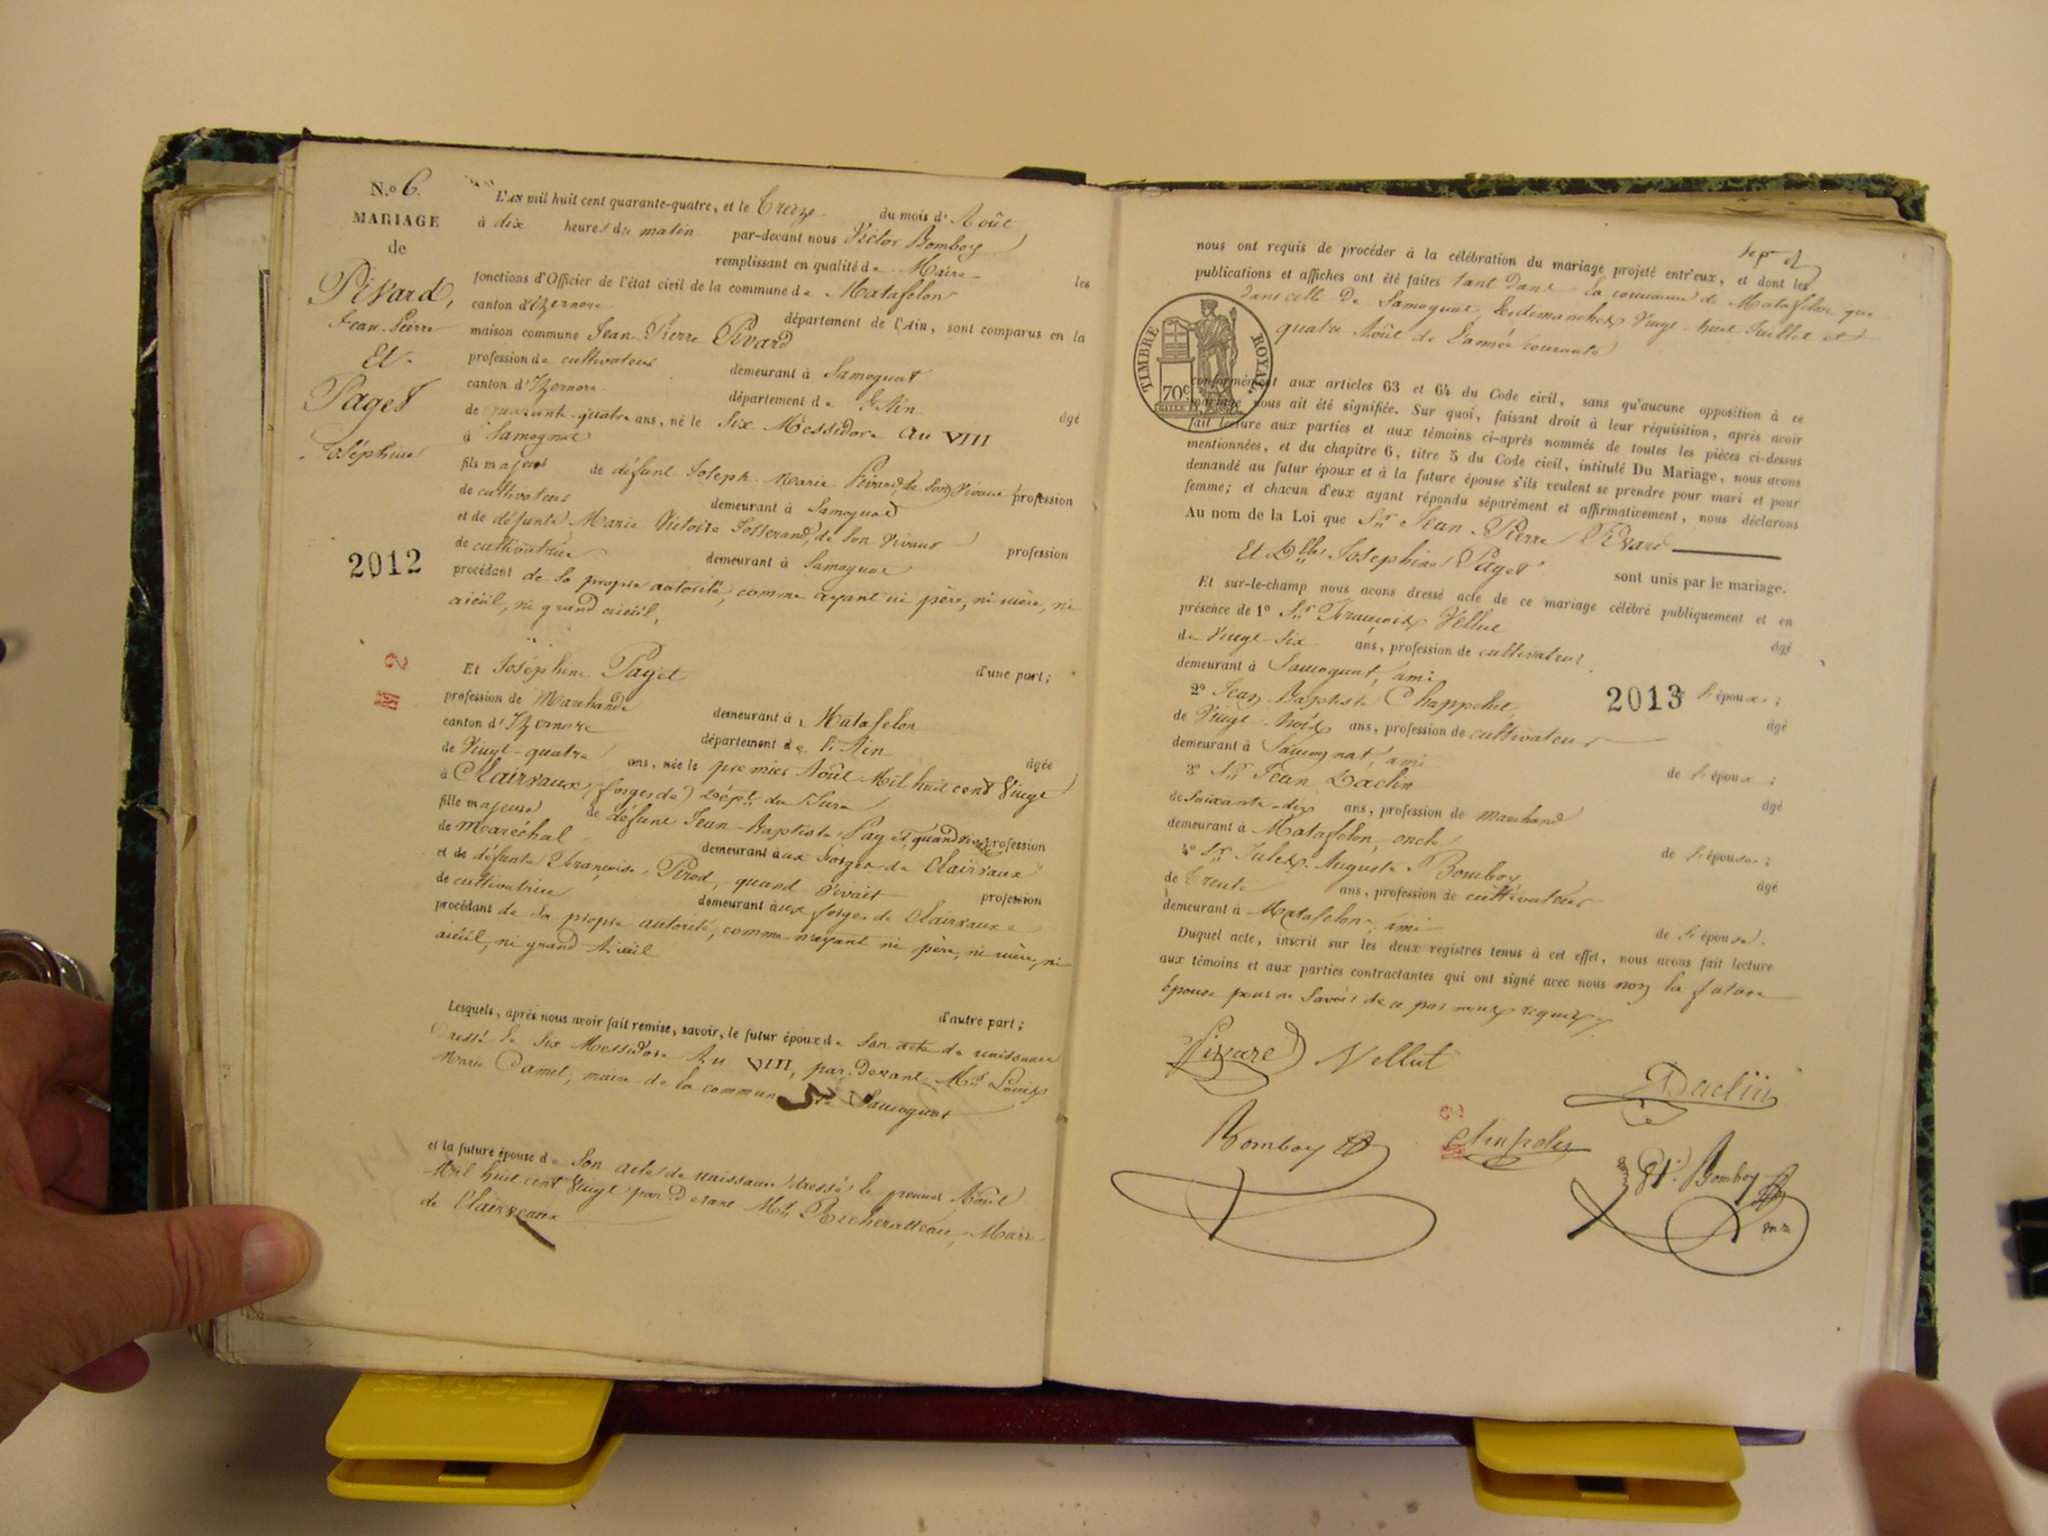 N.º 6.
MARIAGE
de
Pivard,
Jean-Pierre
Et
Paget
Joséphine
2012
L'AN mil huit cent quarante-quatre, et le Treize du mois d'Août
à dix heures du matin par-devant nous Victor Bomboy
remplissant en qualité de Maire les
fonctions d'Officier de l'état civil de la commune de Matafelon
canton d'Izernore département de l'Ain, sont comparus en la
maison commune Jean-Pierre Pivard
profession de cultivateur demeurant à Samognat
canton d'Izernore département de l'Ain âgé
de quarante-quatre ans, né le Six Messidor an VIII
à Samognat
fils majeur de défunt Joseph Marie Pivard, de son vivant profession
de cultivateur demeurant à Samognat
et de défunte Marie Victoire, de son vivant profession
de cultivatrice demeurant à Samognat
procédant de sa propre autorité, comme ayant ni père, ni mère, ni
aïeül, ni grand aïeül,
d'une part;
Et Joséphine Paget
profession de Marchande demeurant à Matafelon
canton d'Izernore département de l'Ain âgée
de Vingt-quatre ans, née le premier Août Mil huit cent Vingt
à Clairvaux (forges de) Dépt. du Jura
fille majeure de défunt Jean-Baptiste Paget, quand vivait profession
de Maréchal demeurant aux forges de Clairvaux
et de défunte Françoise Pirod, quand vivait profession
de cultivatrice demeurant aux forges de Clairvaux
procédant de sa propre autorité, comme n'ayant ni père, ni mère, ni
aïeül, ni grand Aïeül
d'autre part;
Lesquels, après nous avoir fait remise, savoir, le futur époux de Son acte de naissance
dressé le Six Messidor An VIII, par-devant Mr. Louis
Marie Camet, maire de la commune de Samognat
et la future épouse de Son acte de naissance dressé le premier Août
Mil huit cent Vingt par devant Mr. Maire
de Clairveaux
nous ont requis de procéder à la célébration du mariage projeté entr'eux, et dont les
publications et affiches ont été faites tant dans la commune de Matafelon que
dans celle de Samognat, les dimanches Vingt-huit Juillet et
quatre Août de l'année courante
TIMBRE ROYAL
70c
conformément aux articles 63 et 64 du Code civil, sans qu'aucune opposition à ce
mariage nous ait été signifiée. Sur quoi, faisant droit à leur réquisition, après avoir
fait lecture aux parties et aux témoins ci-après nommés de toutes les pièces ci-dessus
mentionnées, et du chapitre 6, titre 5 du Code civil, intitulé Du Mariage, nous avons
demandé au futur époux et à la future épouse s'ils veulent se prendre pour mari et pour
femme; et chacun d'eux ayant répondu séparément et affirmativement, nous déclarons
Au nom de la Loi que Sr. Jean-Pierre Pivard
Et Dlle Joséphine Paget sont unis par le mariage.
Et sur-le-champ nous avons dressé acte de ce mariage célébré publiquement et en
présence de 1º Sr. François Vellut âgé
de Vingt-Six ans, profession de cultivateur
demeurant à Samognat, ami de l'époux;
2013
2º Jean-Baptiste Chappelut, âgé
de Vingt-trois ans, profession de cultivateur
demeurant à Samognat, ami de l'époux;
3º Sr. Jean Daclin âgé
de Soixante-dix ans, profession de Marchand
demeurant à Matafelon, oncle de l'épouse;
4º Sr. Jules-Auguste Bomboy âgé
de Trente ans, profession de cultivateur
demeurant à Matafelon, ami de l'épouse.
Duquel acte, inscrit sur les deux registres tenus à cet effet, nous avons fait lecture
aux témoins et aux parties contractantes qui ont signé avec nous non la future
épouse pour ne savoir de ce par nous requise
Pivard Vellut
Daclin
Bomboy
Bomboy